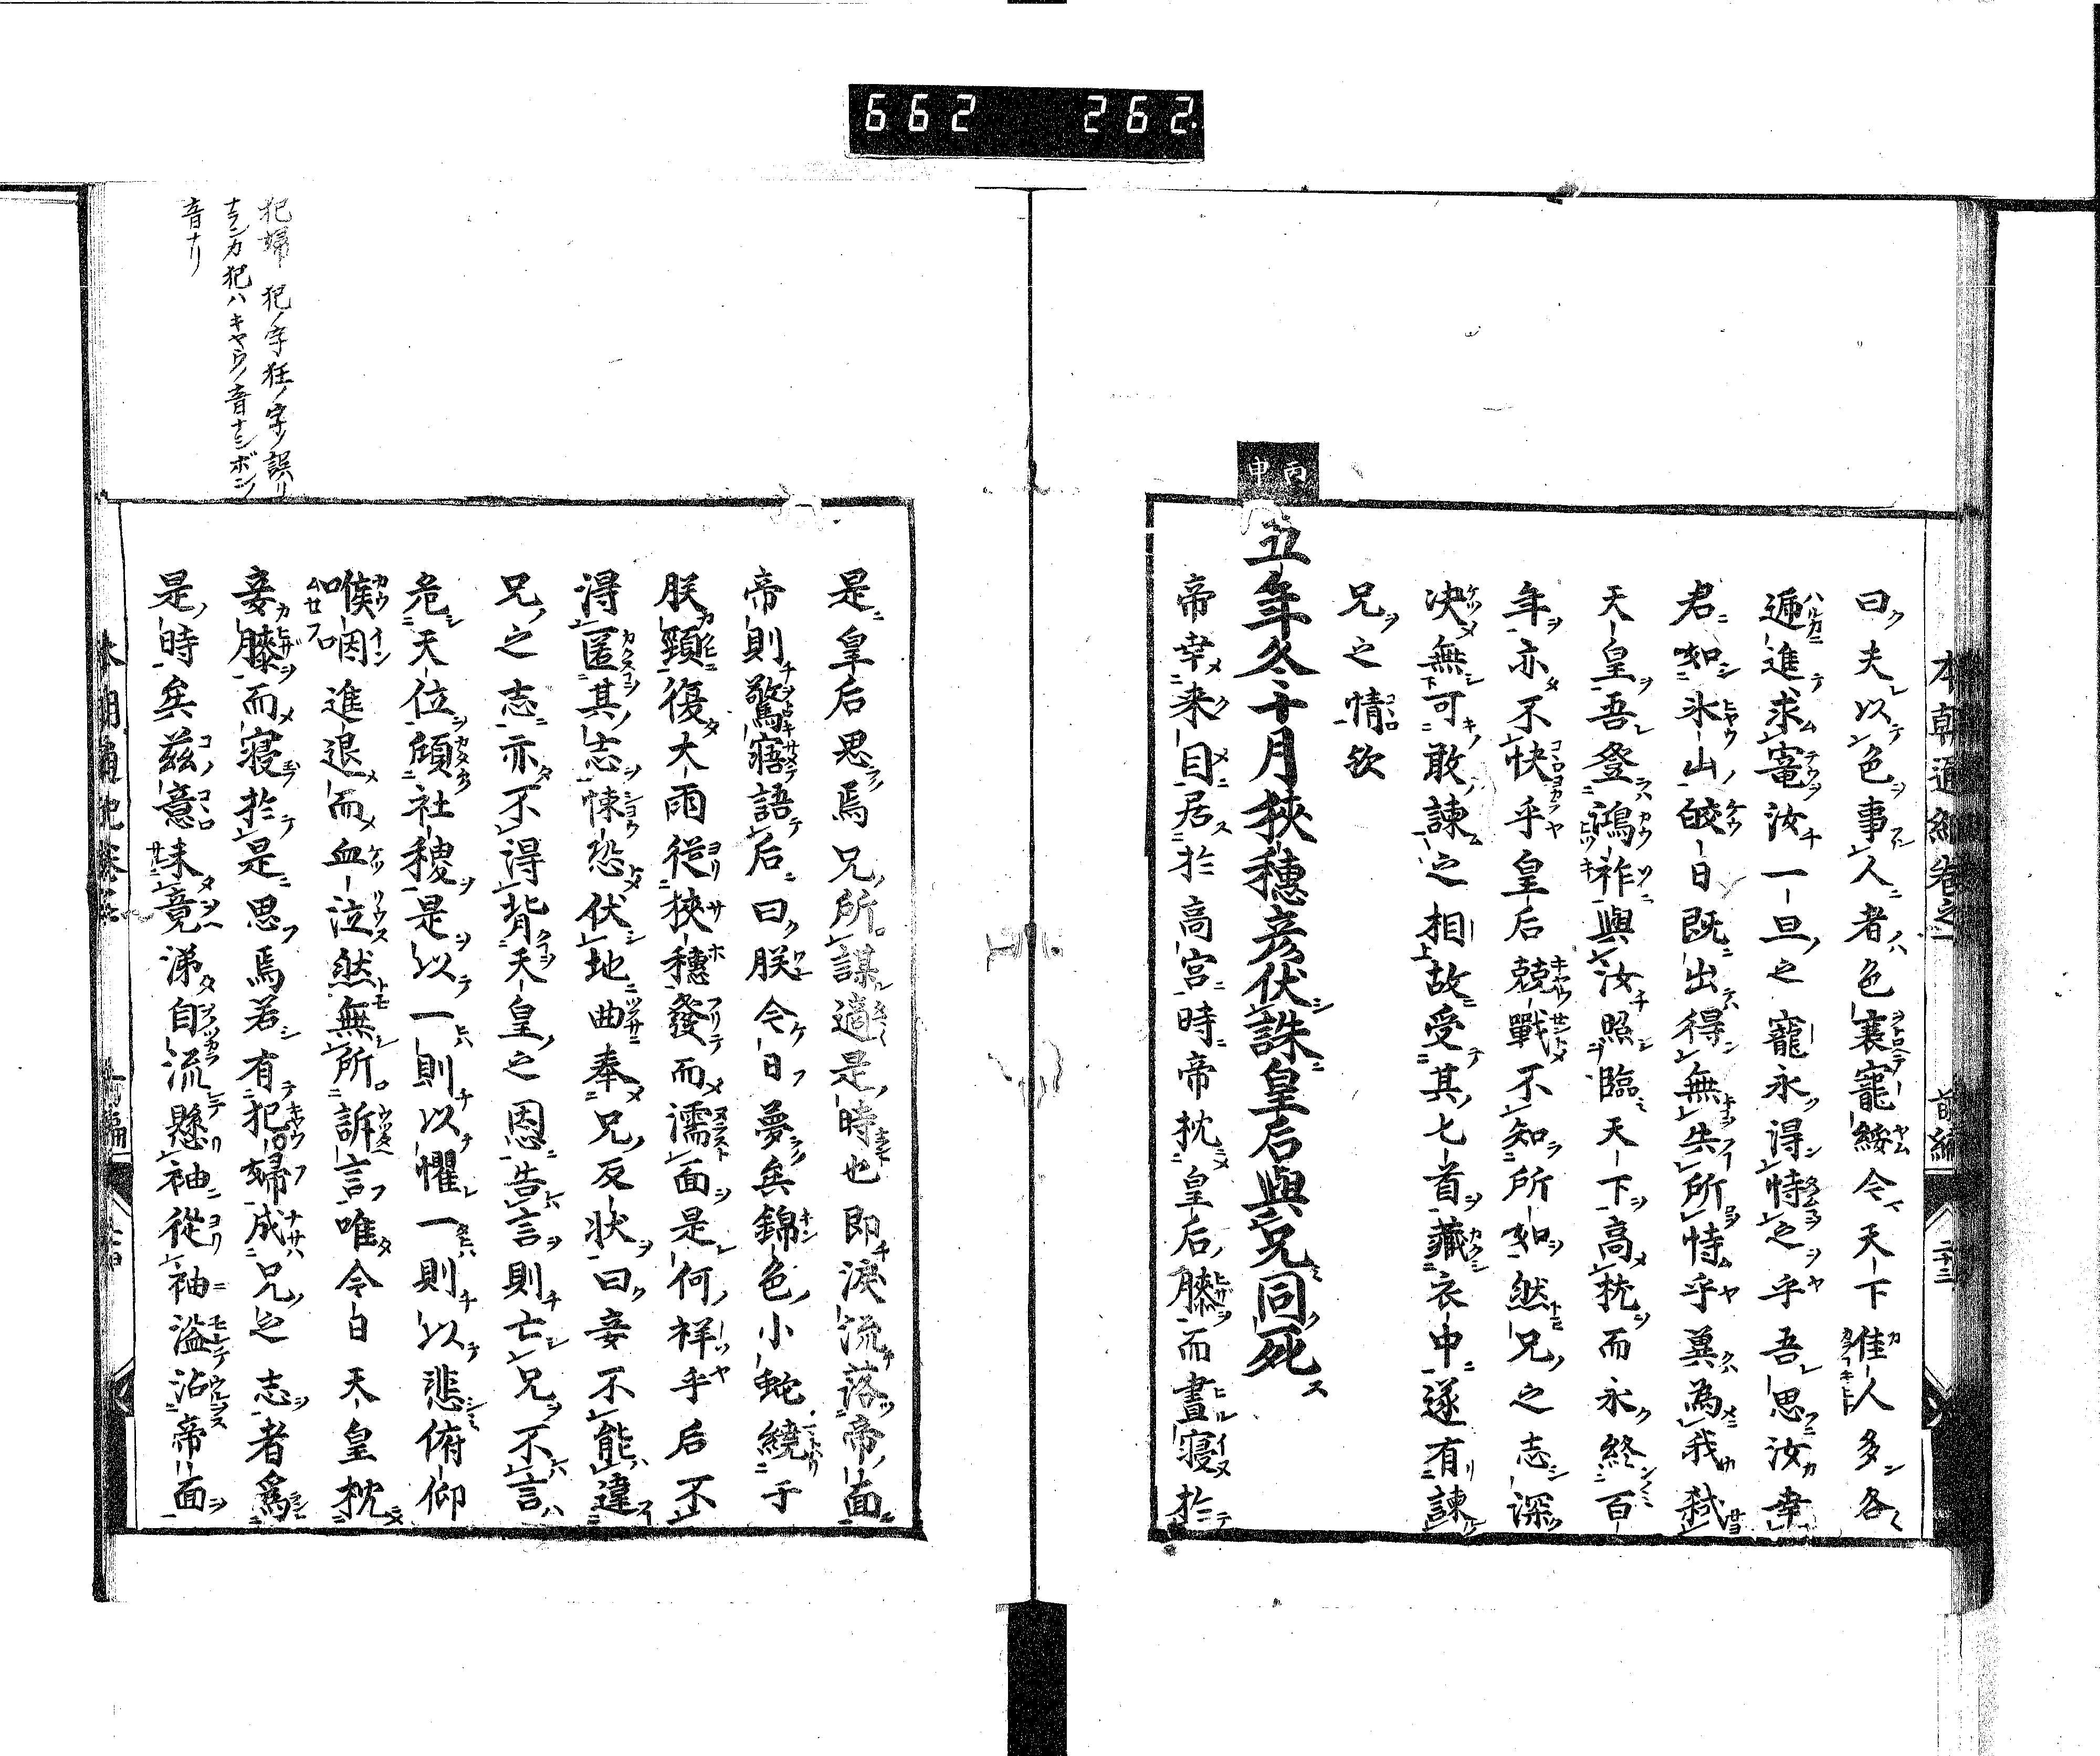 662 262
本朝通紀卷之一 前編 二十三
曰夫以色事人者色衰寵緩今天下佳人多各
遞進求寵汝一旦之寵永得恃之乎吾思汝幸
君如氷山皎日既出得無失所恃乎冀為我弒
天皇吾登鴻祚與汝照臨天下高枕而永終百
年亦不快乎皇后兢戰不知所如然兄之志深
决無可敢諫之相故受其匕首藏衣中遂有諫
兄之情欤
丙申
五年冬十月狹穗彦伏誅皇后與兄同死
帝幸来目居於高宮時帝枕皇后膝而晝寝於
是皇后思焉兄所謀適是時也即淚流落帝面
帝則驚寤語后曰朕今日夢矣錦色小蛇繞于
朕頸復大雨從狹穗發而濡面是何祥乎后不
得匿其志悚恐伏地曲奉兄反状曰妾不能違
兄之志亦不得背天皇之恩告言則亡兄不言
危天位傾社稷是以一則以懼一則以悲俯仰
喉咽進退而血泣然無所訴言唯今日天皇枕
妾膝而寝於是思焉若有犯婦成兄之志者為
是時矣茲意未竟涕自流懸袖從袖溢沾帝面
犯婦 犯ノ字狂ノ字ノ誤リ
ナランカ犯ハキヤウノ音ナシボンノ
音ナリ